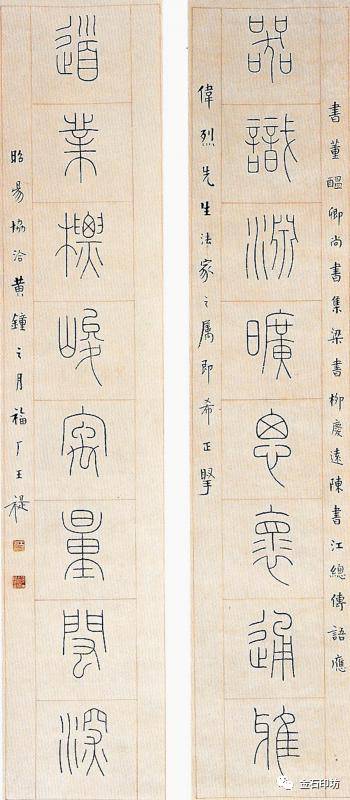 書董醞卿尚書集梁書柳慶遠陳書江總傳語應
器識淵曠思懷通雅
偉烈先生法家之屬即希正掔
道業標峻寓量閎深
昭昜協洽黃鐘之月福厂王禔
金石印坊